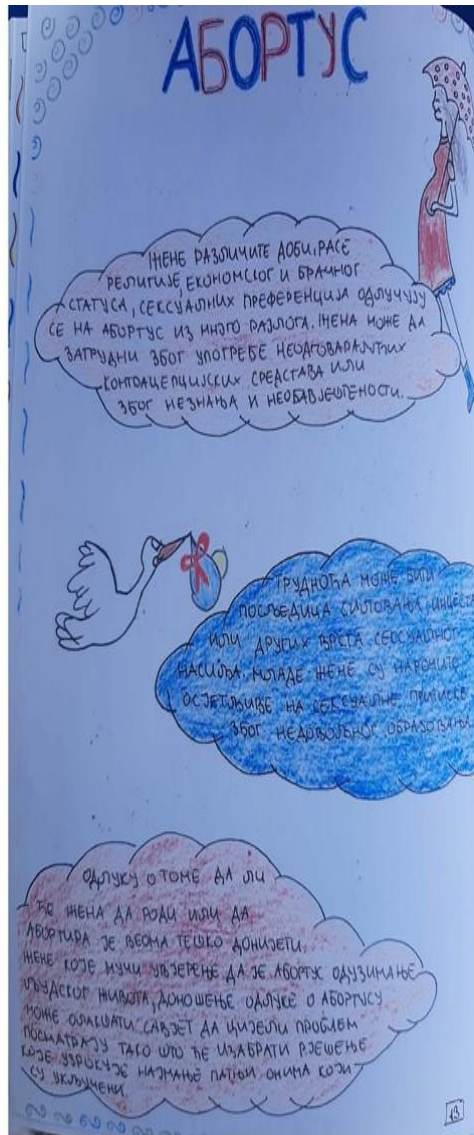 АБОРТУС
ЖЕНЕ РАЗЛИЧИТЕ ДОБИ, РАСЕ
РЕЛИГИЈЕ, ЕКОНОМСКОГ И БРАЧНОГ
СТАТУСА, СЕКСУАЛНИХ ПРЕФЕРЕНЦИЈА ОДЛУЧУЈУ
СЕ НА АБОРТУС ИЗ МНОГО РАЗЛОГА. ЖЕНА МОЖЕ ДА
ЗАТРУДНИ ЗБОГ УПОТРЕБЕ НЕОДГОВАРАЈУЋИХ
КОНТОАЦЕПЦИЈСКИХ СРЕДСТАВА ИЛИ
ЗБОГ НЕЗНАЊА И НЕОБАВЈЕШТЕНОСТИ.
ТРУДНОЋА МОЖЕ БИТИ
ПОСЉЕДИЦА СИЛОВАЊА, ИНЦЕС
ИЛИ ДРУГИХ ВРСТА СЕКСУАЛНОГ
НАСИЉА. МЛАДЕ ЖЕНЕ СУ НАРОЧИТО
ОСЈЕТЉИВЕ НА СЕКСУАЛНЕ ПРИТИСКЕ
ЗБОГ НЕДОВОЉНОГ ОБРАЗОВАЊА
ОДЛУКУ О ТОМЕ ДА ЛИ
ЋЕ ЖЕНА ДА РОДИ ИЛИ ДА
АБОРТИРА ЈЕ ВЕОМА ТЕШКО ДОНИЈЕТИ.
ЖЕНЕ КОЈЕ МУЧИ УВЈЕРЕЊЕ ДА ЈЕ АБОРТУС ОДУЗИМАЊЕ
ЉУДСКОГ ЖИВОТА, ДОНОШЕЊЕ ОДЛУКЕ О АБОРТУСУ
МОЖЕ ОЛАКШАТИ САВЈЕТ ДА ЦИЈЕЛИ ПРОБЛЕМ
ПОСМАТРАЈУ ТАКО ШТО ЋЕ ИЗАБРАТИ РЈЕШЕЊЕ
КОЈЕ УЗРОКУЈЕ НАЈМАЊЕ ПАТЊИ ОНИМА КОЈИ
СУ УКЉУЧЕНИ.
13